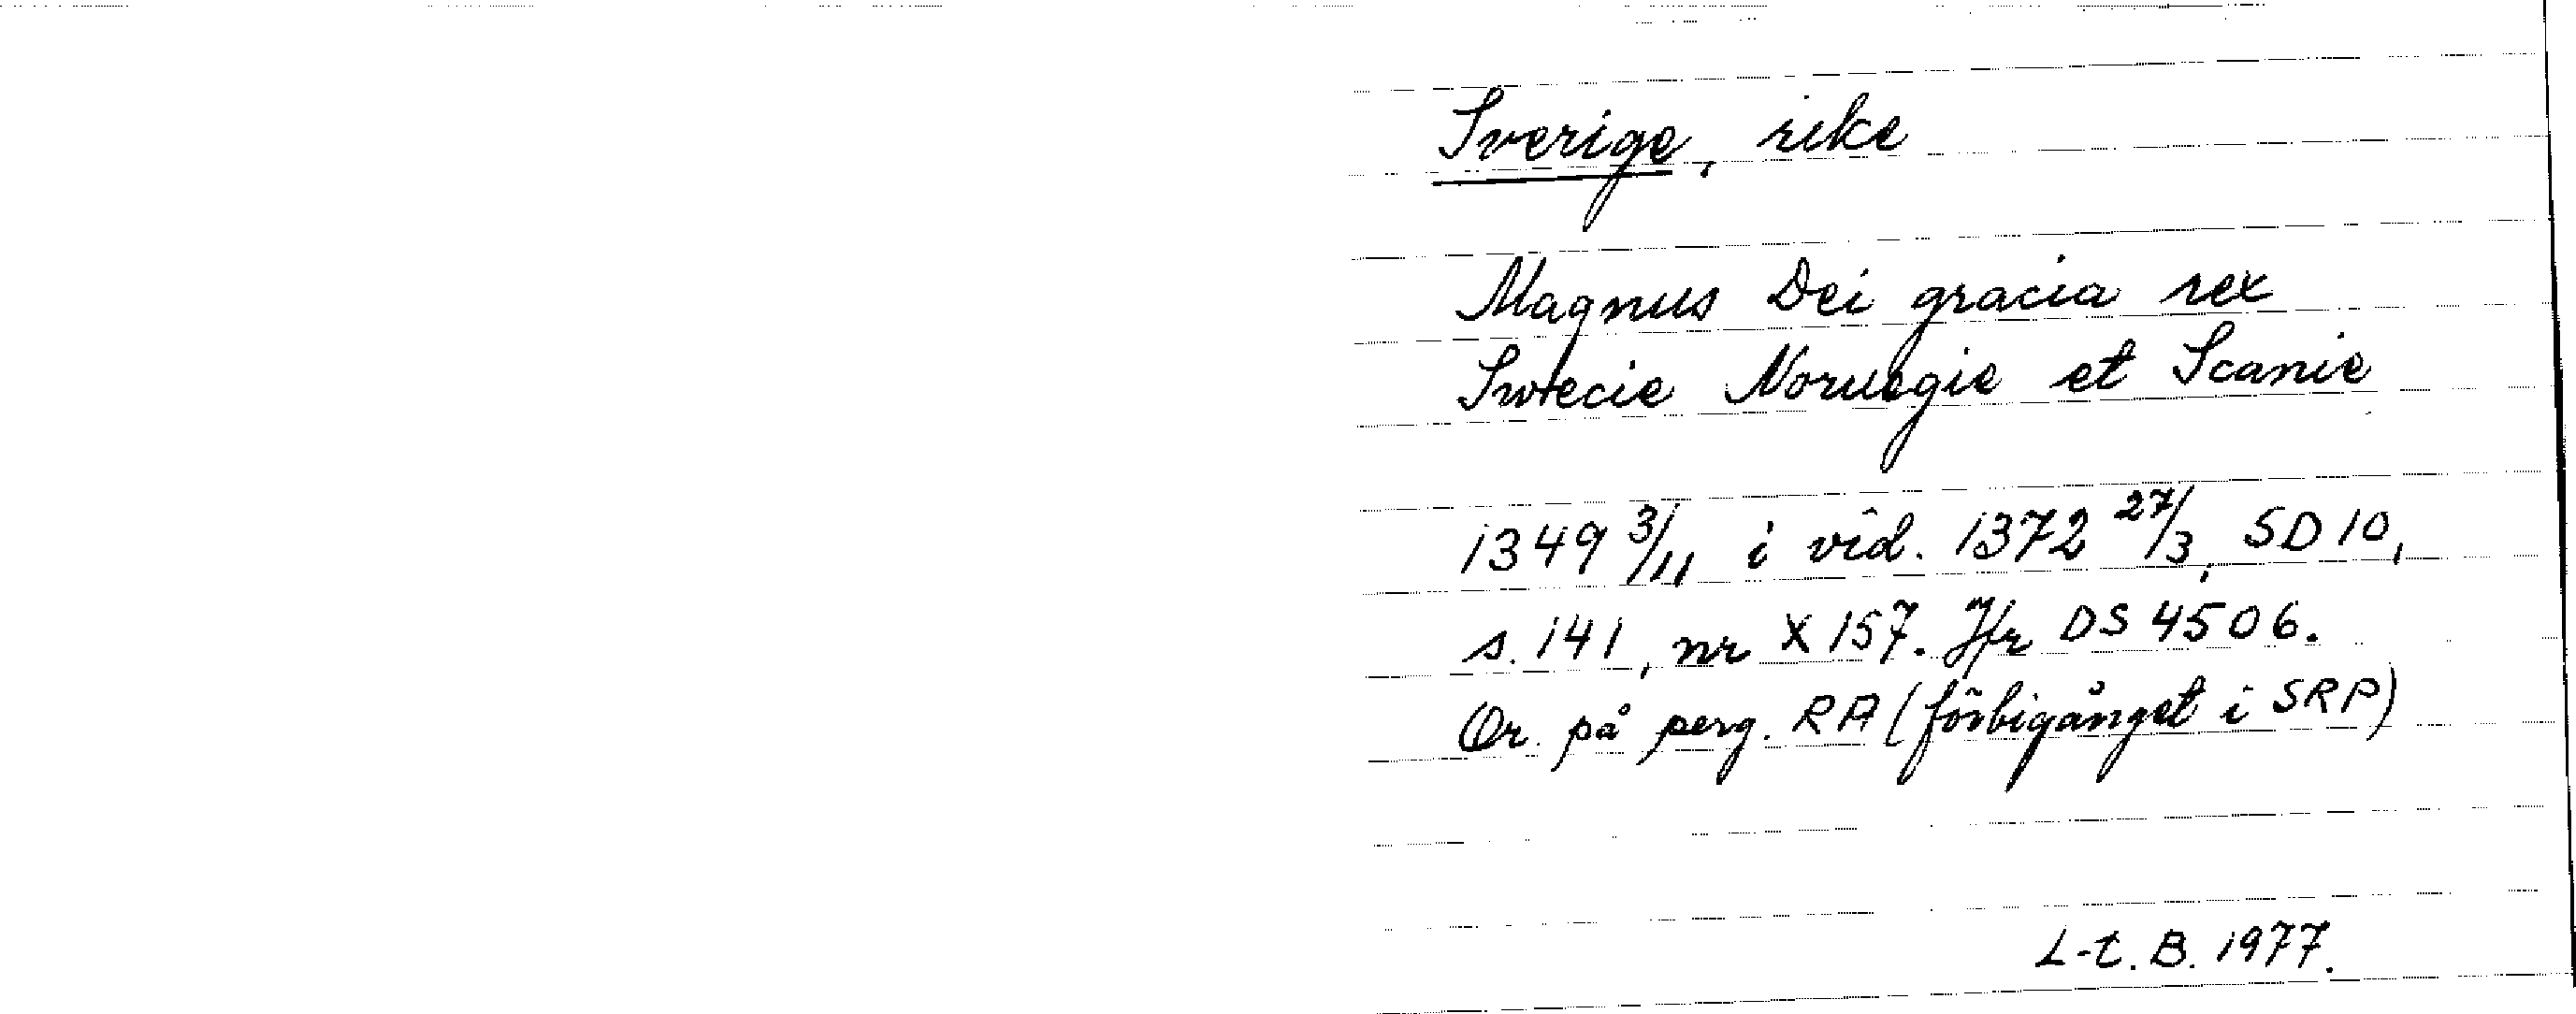 Sverige, rike
Magnus Dei gracia rex
Swecie Noruegie et Scanie
1349 3/11 i vid. 1372 27/3, SD 10,
s. 141, nr X 157. Jfr DS 4506.
Or. på perg. RA (förbigånget i SRP)
L-t. B. 1977.